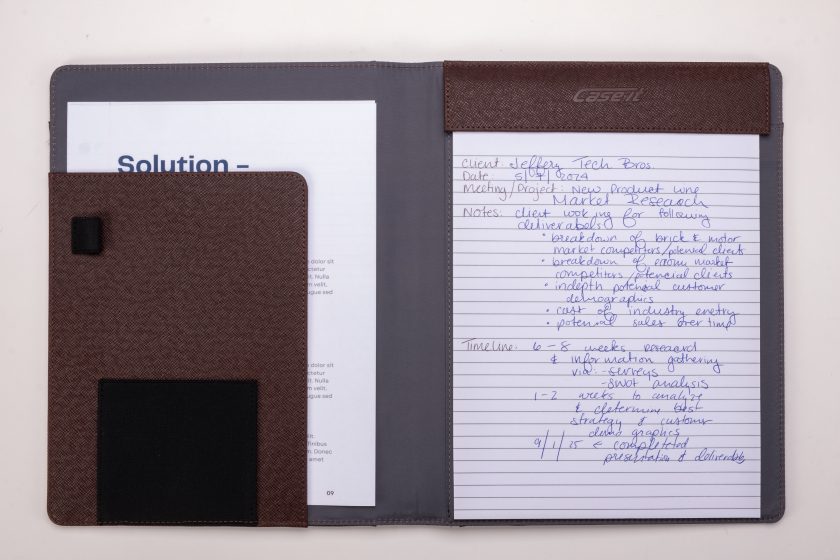 Solution –
dolor sit
ctetur
m velit,
t. Nulla
ugue sed
dolor sit
ctetur
m velit,
t. Nulla
ugue sed
it:
finibus
Donec
amet
09
Case·it
Client: Jeffery Tech Bros.
Date: 5/7/2024
Meeting/Project: New Product Line
Market Research
Notes: Client looking for following
deliverables
• breakdown of brick & motor
market competitors/potential clients
• breakdown of market
competitors/potencial clients
• indepth potenal customer
demographics
• cast of industry enetry
• potential sales over time
Timeline: 6-8 weeks research
& information gathering
via: -surveys
-swot analysis
1-2 weeks to analyze
& determine best
strategy & customer
demo graphics
9/1/25 & completeted
presentation & deliverables